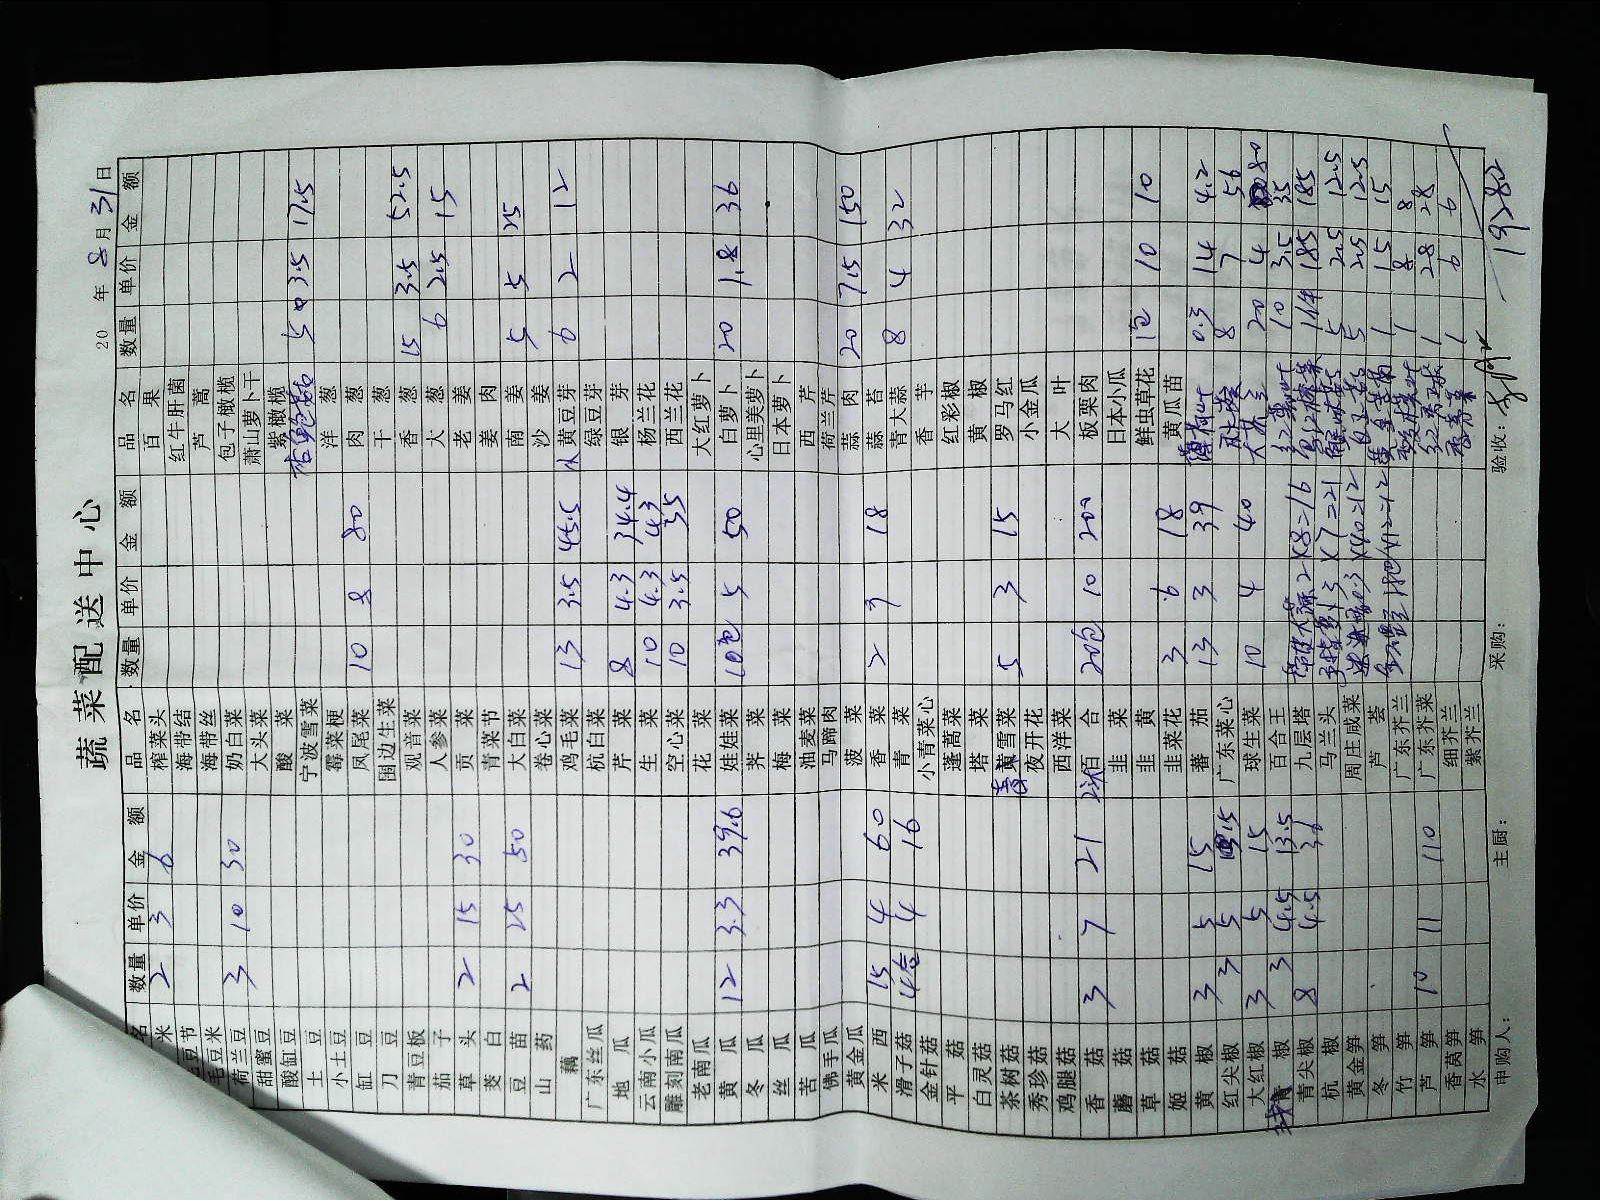 蔬菜配送中心
20 年 8 月 31 日
品名 数量 单价 金额 品名 数量 单价 金额 品名 数量 单价 金额
米 2 3 6 榨菜头 百果
豆节 海带结 红牛肝菌
毛豆米 海带丝 芦蒿
荷兰豆 3 10 30 奶白菜 包子橄榄
甜蜜豆 大头菜 萧山萝卜干
酸缸豆 酸菜 紫橄榄
土豆 宁波雪菜 杏鲍菇 50 3.5 175
小土豆 霉菜梗 洋葱
缸豆 凤尾菜 10 8 80 肉葱
刀豆 围边生菜 干葱
青豆板 观音菜 香葱 15 3.5 52.5
茄子 人参菜 大葱 6 2.5 15
草头 2 15 30 贡菜 老姜
茭白 青菜节 姜肉
豆苗 2 25 50 大白菜 南姜 5 5 25
山药 卷心菜 沙姜
藕 鸡毛菜 13 3.5 45.5 黄豆芽 6 2 12
广东丝瓜 杭白菜 绿豆芽
地瓜 芹菜 8 4.3 34.4 银芽
云南小瓜 生菜 10 4.3 43 杨兰花
雕刻南瓜 空心菜 10 3.5 35 西兰花
老南瓜 花菜 大红萝卜
黄瓜 12 3.3 39.6 娃娃菜 10包 5 50 白萝卜 20 1.8 36
冬瓜 荠菜 心里美萝卜
丝瓜 梅菜 日本萝卜
苦瓜 油麦菜 西芹
佛手瓜 马蹄肉 荷兰芹
黄金瓜 菠菜 蒜肉 20 7.5 150
米西 15 4 60 香菜 2 9 18 蒜苔
滑子菇 4合 4 16 青菜 青大蒜 8 4 32
金针菇 小青菜心 香芋
平菇 蓬蒿菜 红彩椒
白灵菇 塔菜 黄椒
茶树菇 雪菜 5 3 15 罗马红
秀珍菇 夜开花 小金瓜
鸡腿菇 西洋菜 大叶
香菇 3 7 21 百合 20包 10 200 板栗肉
蘑菇 韭菜 日本小瓜
草菇 韭黄 鲜虫草花 1包 10 10
姬菇 韭菜花 3 6 18 黄瓜苗
黄椒 3 5 15 蕃茄 13 3 39 薄荷叶 0.3 14 4.2
红尖椒 3 5 15 广东菜心 8 7 56
大红椒 3 5 15 球生菜 10 4 40 20 4 80
椒 3 4.5 13.5 百合王 10 3.5 35
青尖椒 8 4.5 36 九层塔 2×8=16 1件 185 185
杭椒 马兰头 3×7=21 5 2.5 12.5
黄金笋 周庄咸菜 0.3×40=12 5 2.5 12.5
冬笋 芦荟 1把×12=12 1 15 15
竹笋 广东芥兰 1 8 8
芦笋 10 11 110 广东芥菜 1 28 28
香莴笋 细芥兰 1 6 6
水笋 紫芥兰
申购人： 主厨： 采购： 验收：